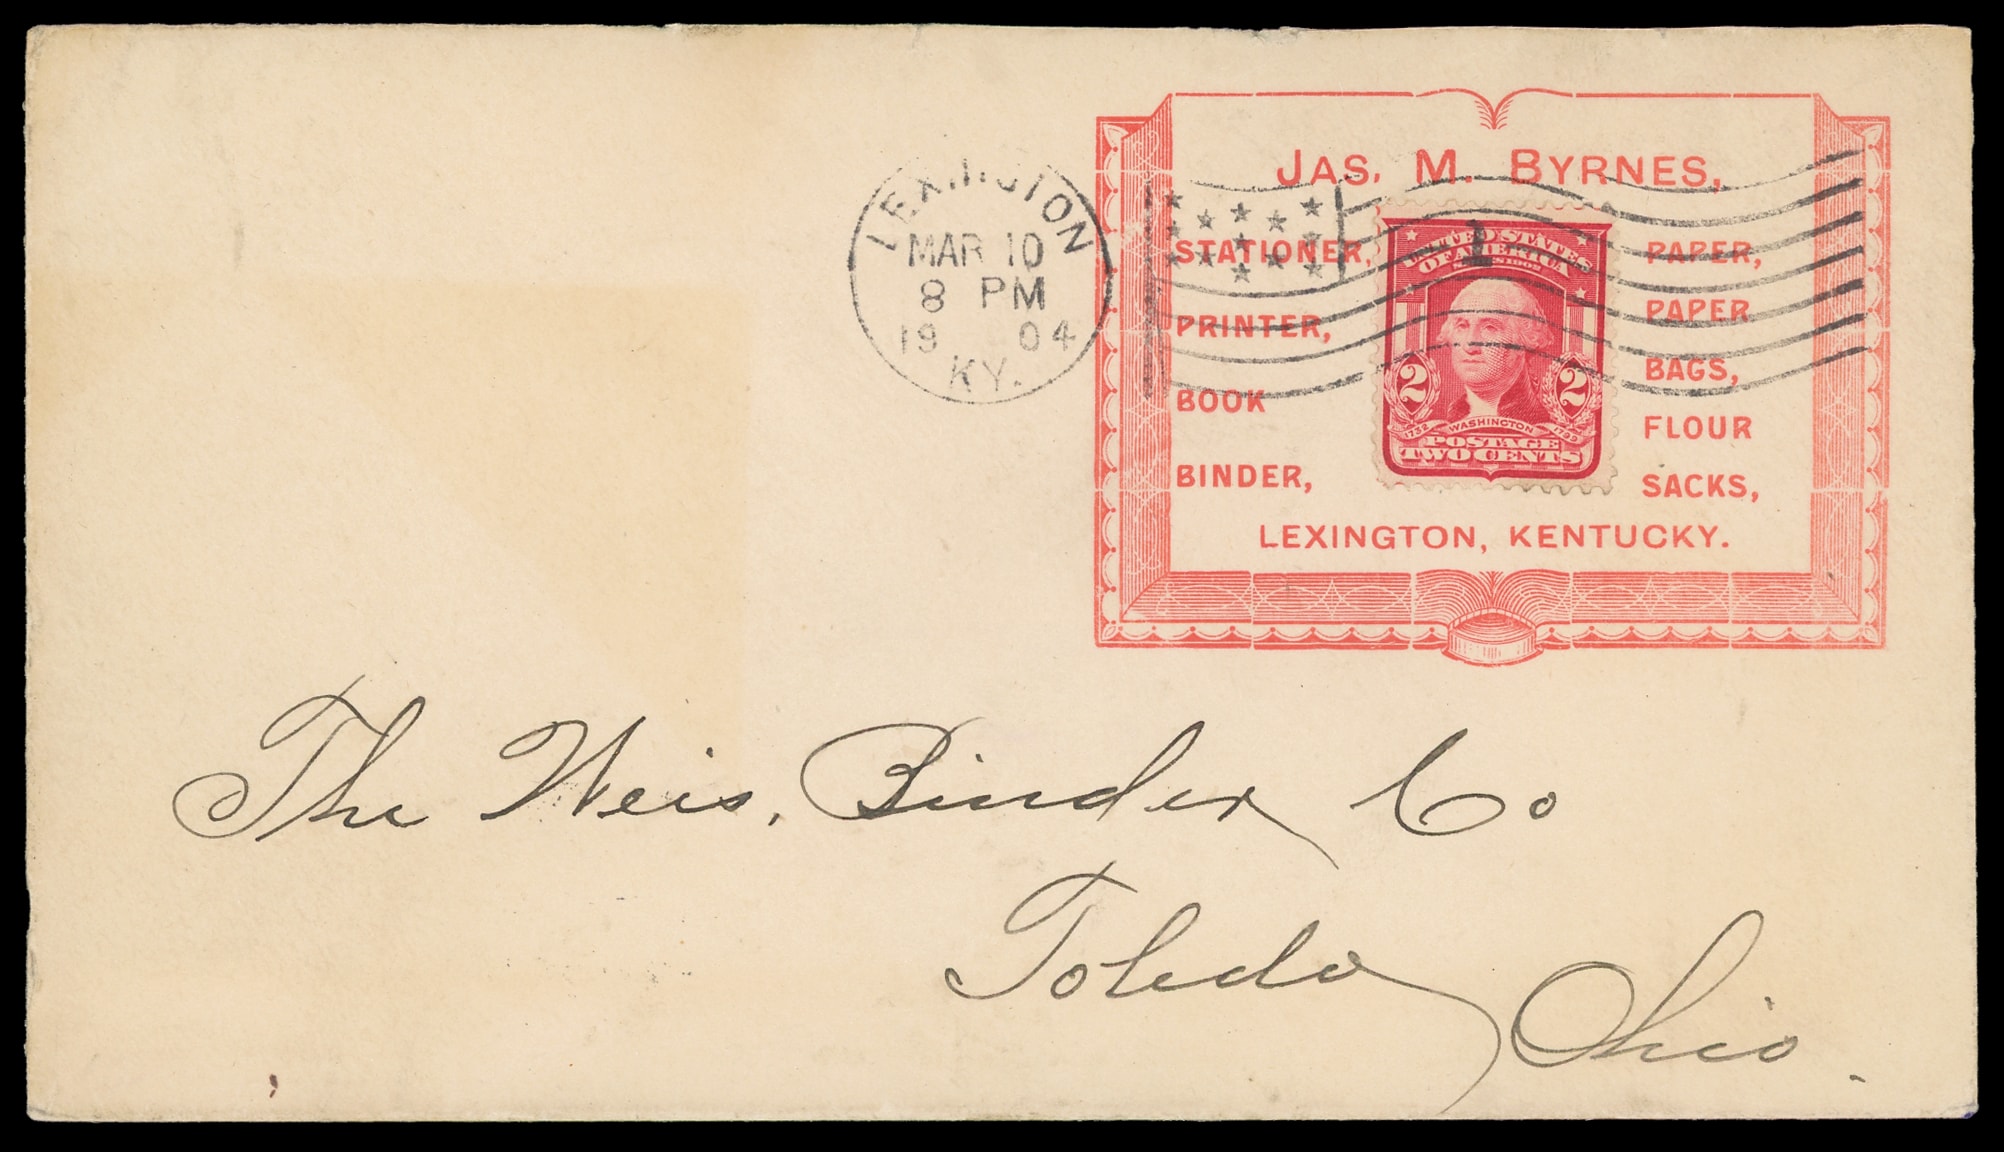 LEXINGTON
MAR 10
8 PM
19 04
KY.
JAS. M. BYRNES,
STATIONER,
PRINTER,
BOOK
BINDER,
1
UNITED STATES
OF AMERICA
SERIES 1902
2 2
1732 WASHINGTON 1799
POSTAGE
TWO CENTS
PAPER,
PAPER
BAGS,
FLOUR
SACKS,
LEXINGTON, KENTUCKY.
The Weis. Binder Co
Toledo
Ohio.